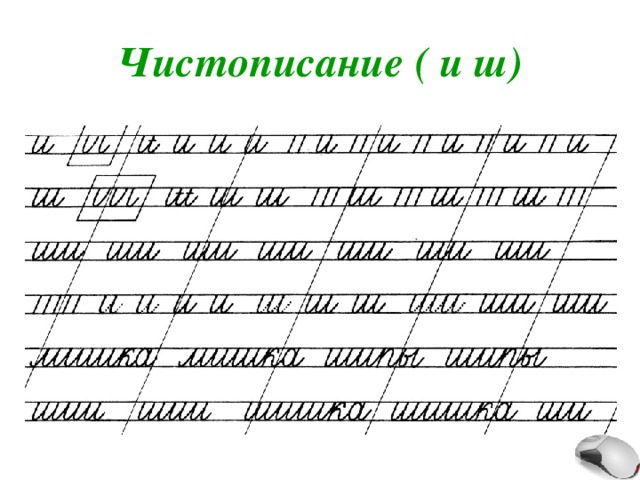 Чистописание ( и ш)
и и и и и и и и и и и
ш ш ш ш ш ш ш
ши ши ши ши ши ши ши
и и и и ш ш ш ши ши ши
мишка мишка шипы шипы
шишка шишка ши